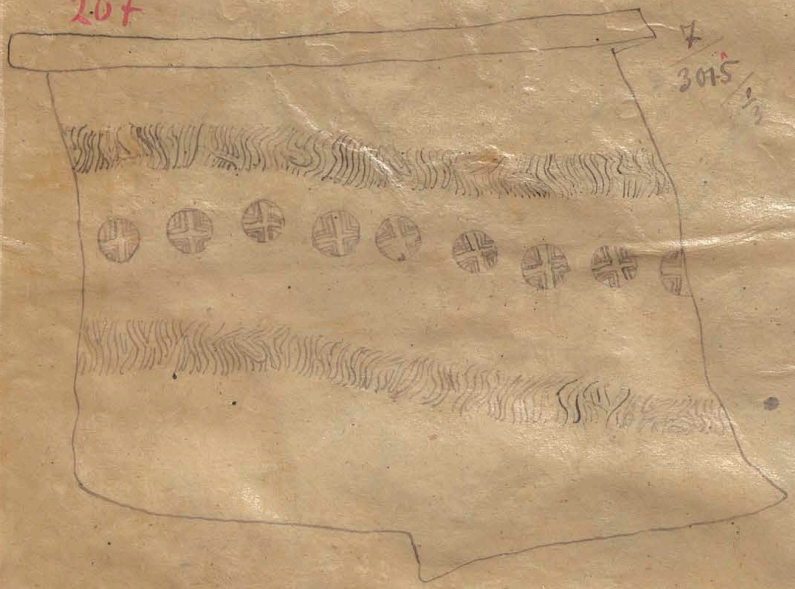 207
7
3015
1/3